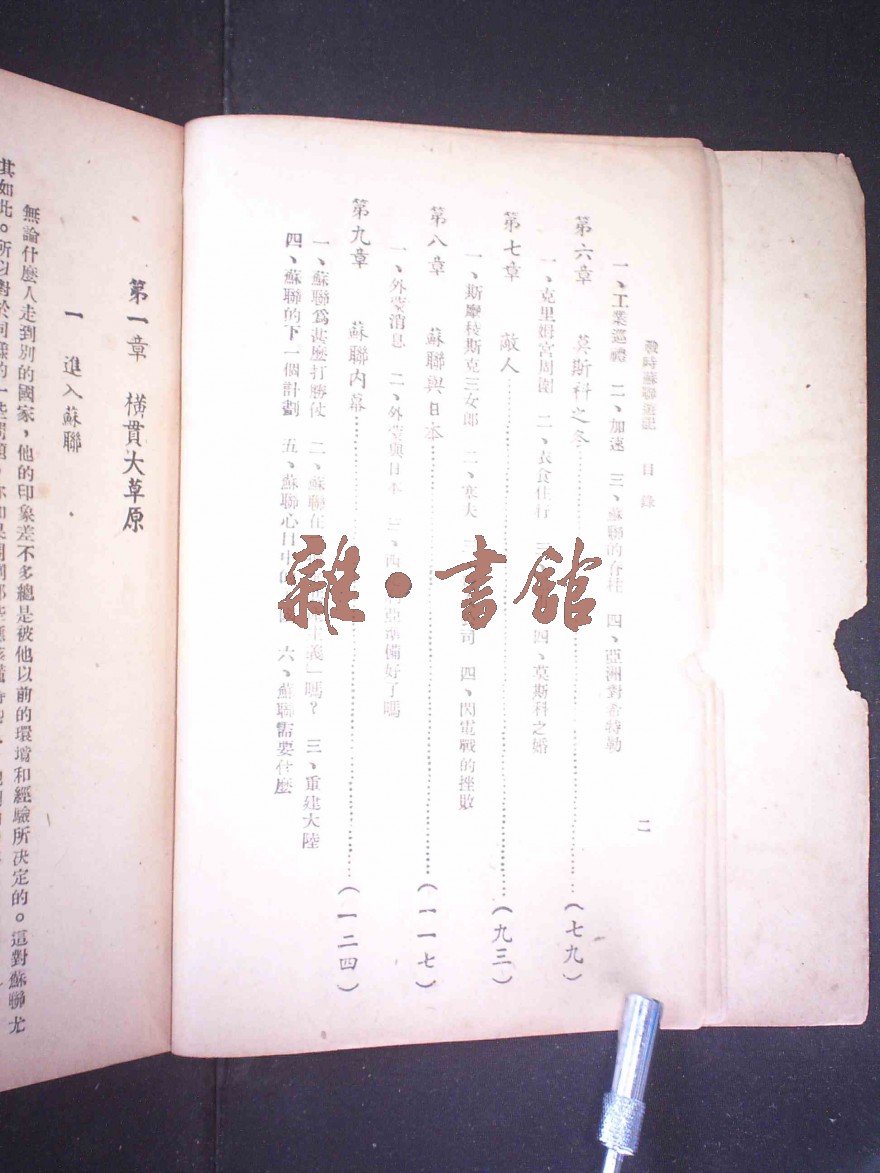 戰時蘇聯遊記　目錄　二
一、工業巡禮　二、加速　三、蘇聯的台柱　四、亞洲對希特勒
第六章　莫斯科之冬……（七九）
一、克里姆宮周圍　二、衣食住行　四、莫斯科之婚
第七章　敵人……（九三）
一、斯摩稜斯克三女郎　二、寒夫　司　四、閃電戰的挫敗
第八章　蘇聯與日本……（一一七）
一、外蒙消息　二、外蒙與日本　三、西　亞準備好了嗎
第九章　蘇聯內幕……（一二四）
一、蘇聯爲甚麼打勝仗　二、蘇聯在　主義一嗎？　三、重建大陸
四、蘇聯的下一個計劃　五、蘇聯心目中的　六、蘇聯需要什麼
雜・書館
第一章　橫貫大草原
一　進入蘇聯
無論什麼人走到別的國家，他的印象差不多總是被他以前的環境和經驗所決定的。這對蘇聯尤
其如此。所以對於同樣的一些問題，